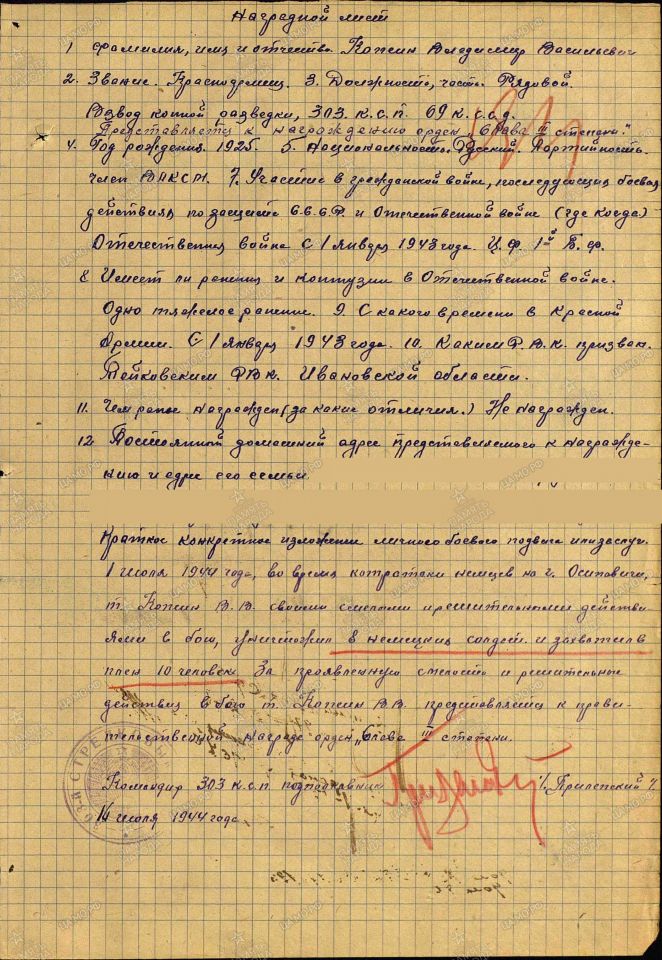 Наградной лист
1 Фамилия, имя и отчество. Копеин Владимир Васильевич
2. Звание. Красноармеец. 3. Должность, часть. Рядовой.
Взвод конной разведки, 303. к.с.п. 69 к.с.д.
Представляется к награждению орден. "Слава III степени."
4. Год рождения. 1925. 5. Национальность. Русский. Партийность.
член ВЛКСМ. 7. Участие в гражданской войне, последующих боевых
действиях по защите С.С.С.Р. и Отечественной войне (где когда)
Отечественная война с 1 января 1943 года. Ц.Ф. 1й Б.Ф.
8 Имеет ли ранения и контузии в Отечественной войне.
Одно тяжелое ранение. 9. С какого времени в Красной
Армии. С 1 января 1943 года. 10. Каким Р.В.К. призван.
Тейковским РВК. Ивановской области.
11. Чем ранее награжден (за какие отличия.) Не награжден.
12 Постоянный домашний адрес представляемого к награжде-
нию и адрес его семьи
Краткое конкретное изложение личного боевого подвига или заслуг.
1 июля 1944 года, во время контратаки немцев на г. Осиповичи,
т. Копеин В.В. своими смелыми и решительными действи
ями в бою, уничтожил 8 немецких солдат. и захватил в
плен 10 человек. За проявленную смелость и решительные
действия в бою т. Копеин В.В. представляется к прави-
тельственной награде орден "Слава III степени.
Командир 303 к.с.п. подполковник /Прилепский/
14 июля 1944 года.